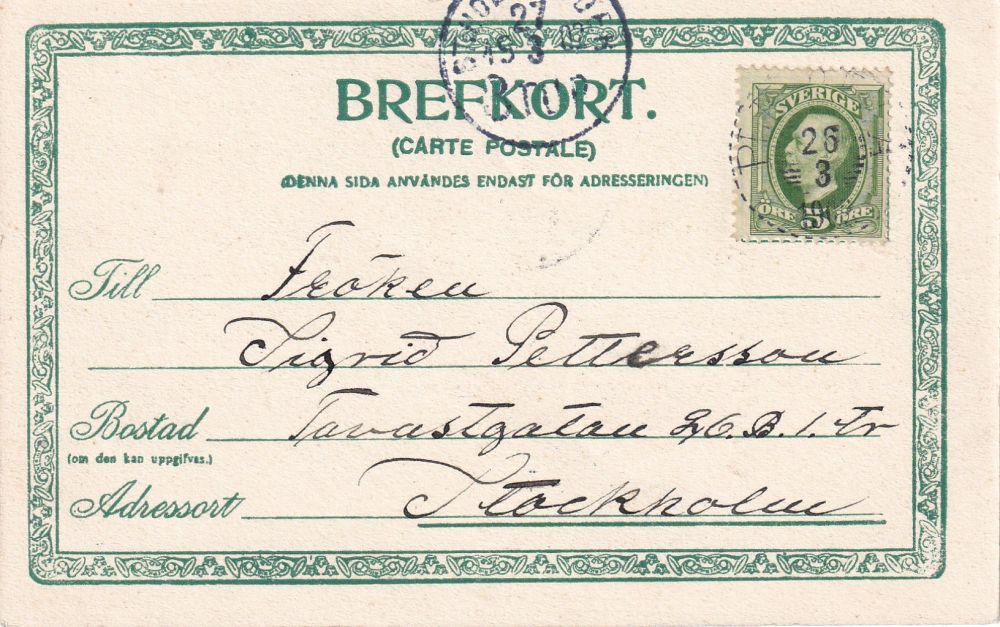 27
15 3
2 TUR
BREFKORT.
(CARTE POSTALE)
(DENNA SIDA ANVÄNDES ENDAST FÖR ADRESSERINGEN)
SVERIGE
26
3
ÖRE 5 ÖRE
Till Fröken
Sigrid Pettersson
Bostad Tavastgatan 26.B.1.Tr
(om den kan uppgifvas.)
Adressort Stockholm